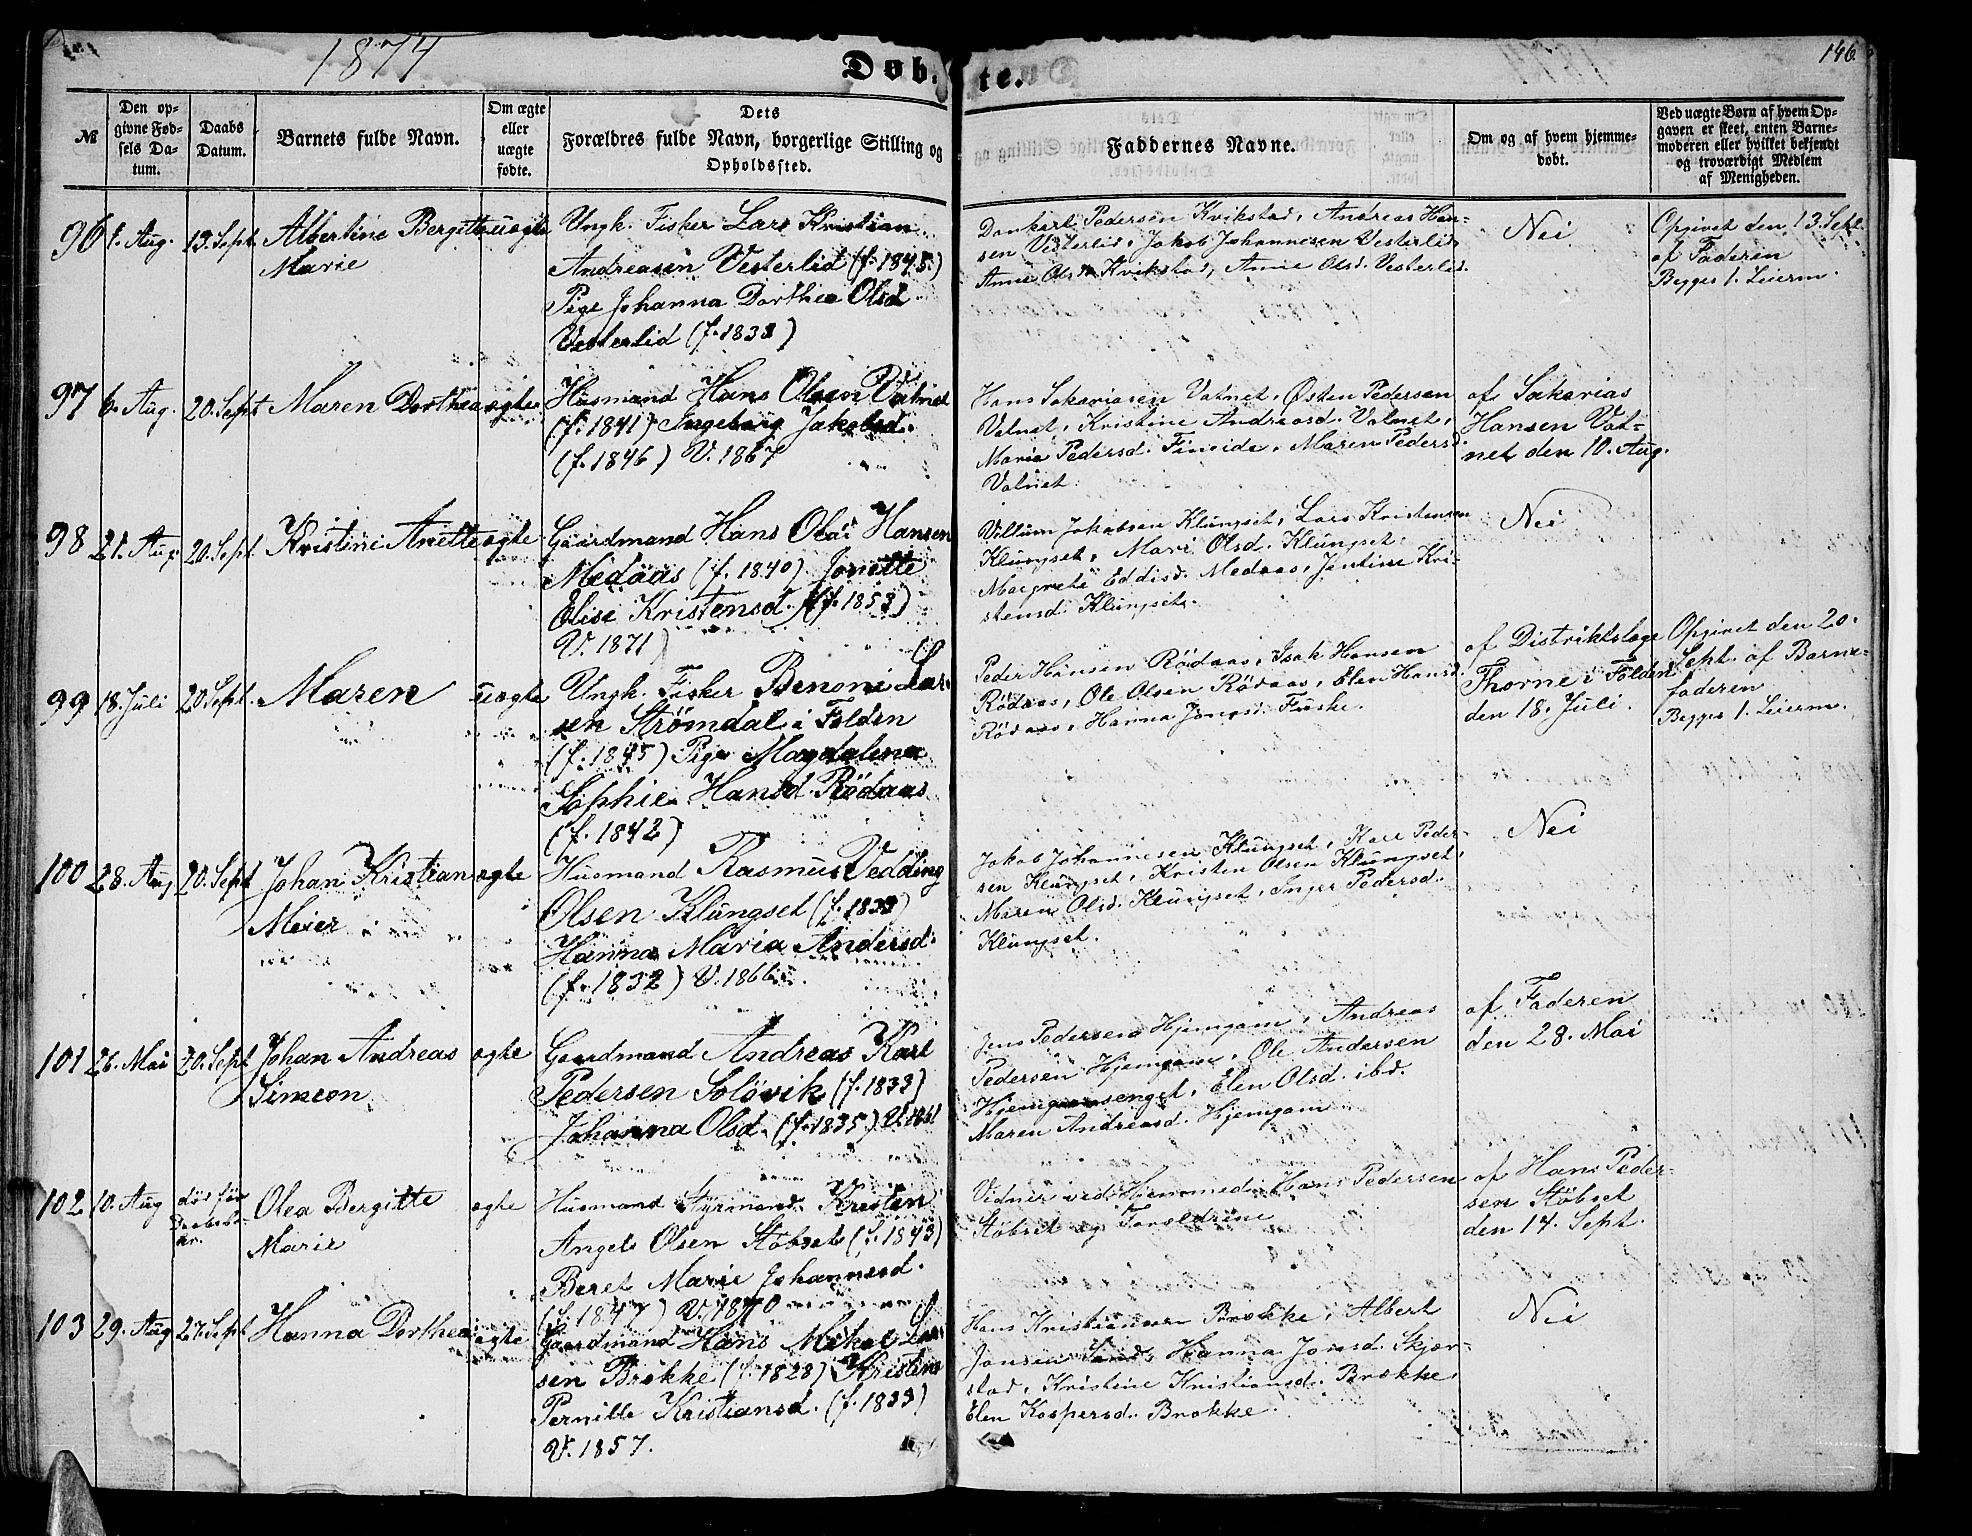 1874
Døbte.
146
№
Den opgivne Fødsels Datum.
Daabs Datum.
Barnets fulde Navn.
Om ægte eller uægte fødte.
Dets Forældres fulde Navn, borgerlige Stilling og Opholdssted.
Faddernes Navne.
Om og af hvem hjemmedøbt.
Ved uægte Børn af hvem Opgaven er skeet, enten Barnemoderen eller hvilket bekjendt og troværdigt Medlem af Menigheden.
96
1. Aug.
13. Sept.
Albertine Bergitte
Marie
uægte
Ungk. Fisker Lars Kristian
Andreasen Vesterlid (f. 1845.)
Pige Johanna Dorthea Olsd
Vesterlid (f. 1838)
Dankert Pedersen Kvikstad, Andreas Han-
sen Vesterlid, Jakob Johannesen Vesterlid
Anne Olsd Kvikstad, Anne Olsd. Vesterlid.
Nei
Opgivet den 13. Sept.
af Faderen
Begges 1. Leierm.
97
6. Aug.
20. Sept
Maren Dorthea
ægte
Husmand Hans Olsen Vatnet
(f. 1841) Ingeborg Jakobsd.
(f. 1846) V. 1867
Hans Sakariasen Vatnet, Østen Pedersen
Vatnet, Kristine Andreasd. Vatnet,
Maria Pedersd. Fineide, Maren Pedersd.
Vatnet.
af Sakarias
Hansen Vat-
net den 10. Aug.
98
21. Aug.
20. Sept
Kristine Anette
ægte
Gaardmand Hans Olai Hansen
Medaas (f. 1840) Jonette
Elise Kristensd. (f. 1853)
V. 1871
Villum Jakobsen Klungset, Lars Kristensen
Klungset, Mari Olsd. Klungset
Margrete Eddisd. Medaas, Jentine Kri-
stensd. Klungset.
Nei
99
18. Juli
20 Sept.
Maren
uægte
Ungk. Fisker Benoni Lar-
sen Strømdal i Folden
(f. 1845) Pige Magdalena
Sophie Hansd. Rödaas
(f. 1842)
Peder Hansen Rödaas, Isak Hansen
Rödaas, Ole Olsen Rödaas, Elen Hansd.
Rödaas, Hanna Jonasd. Fuske.
af Distriktslæge
Thorne i Folden
den 18. Juli.
Opgivet den 20.
Sept. af Barne-
faderen
Begges 1. Leierm.
100
28. Aug
20. Sept
Johan Kristian
Meier
ægte
Husmand Rasmus Vedding
Olsen Klungset (f. 1839)
Hanna Maria Andersd.
(f. 1832) V. 1866
Jakob Johannesen Klungset, Karl Peder-
sen Klungset, Kristen Olsen Klungset,
Maren Olsd. Klungset, Inger Pedersd.
Klungset.
Nei
101
26. Mai
20. Sept
Johan Andreas
Simeon
ægte
Gaardmand Andreas Karl
Pedersen Solövik (f. 1833)
Johanna Olsd. (f. 1835)
Jens Pedersen Hjemgam, Andreas
Pedersen Hjemgam, Ole Andersen
Hjemgamsenget, Elen Olsd. ibd.
Maren Andreasd. Hjemgam
af Faderen
den 28. Mai
102
10. Aug
död för
Daaben
Olea Bergitte
Marie
ægte
Husmand Styrmand Kristen
Angel Olsen Stöbset (f. 1843)
Beret Marie Johannesd.
(f. 1847) V. 1870
Vidner ved Hjemmed. Hans Pedersen
Stöbset og Forældrene
af Hans Peder-
sen Stöbset
den 14. Sept.
103
29. Aug
27. Sept
Hanna Dorthea
ægte
Gaardmand Hans Mikal Lar-
sen Brække (f. 1828) Kristine
Pernille Kristiansd. (f. 1833)
V. 1857.
Hans Kristiansen Brække, Albert
Jonsen Sand, Hanna Jonsd. Skjær-
stad, Kristine Kristiansd. Brække,
Elen Kaspersd. Brække.
Nei